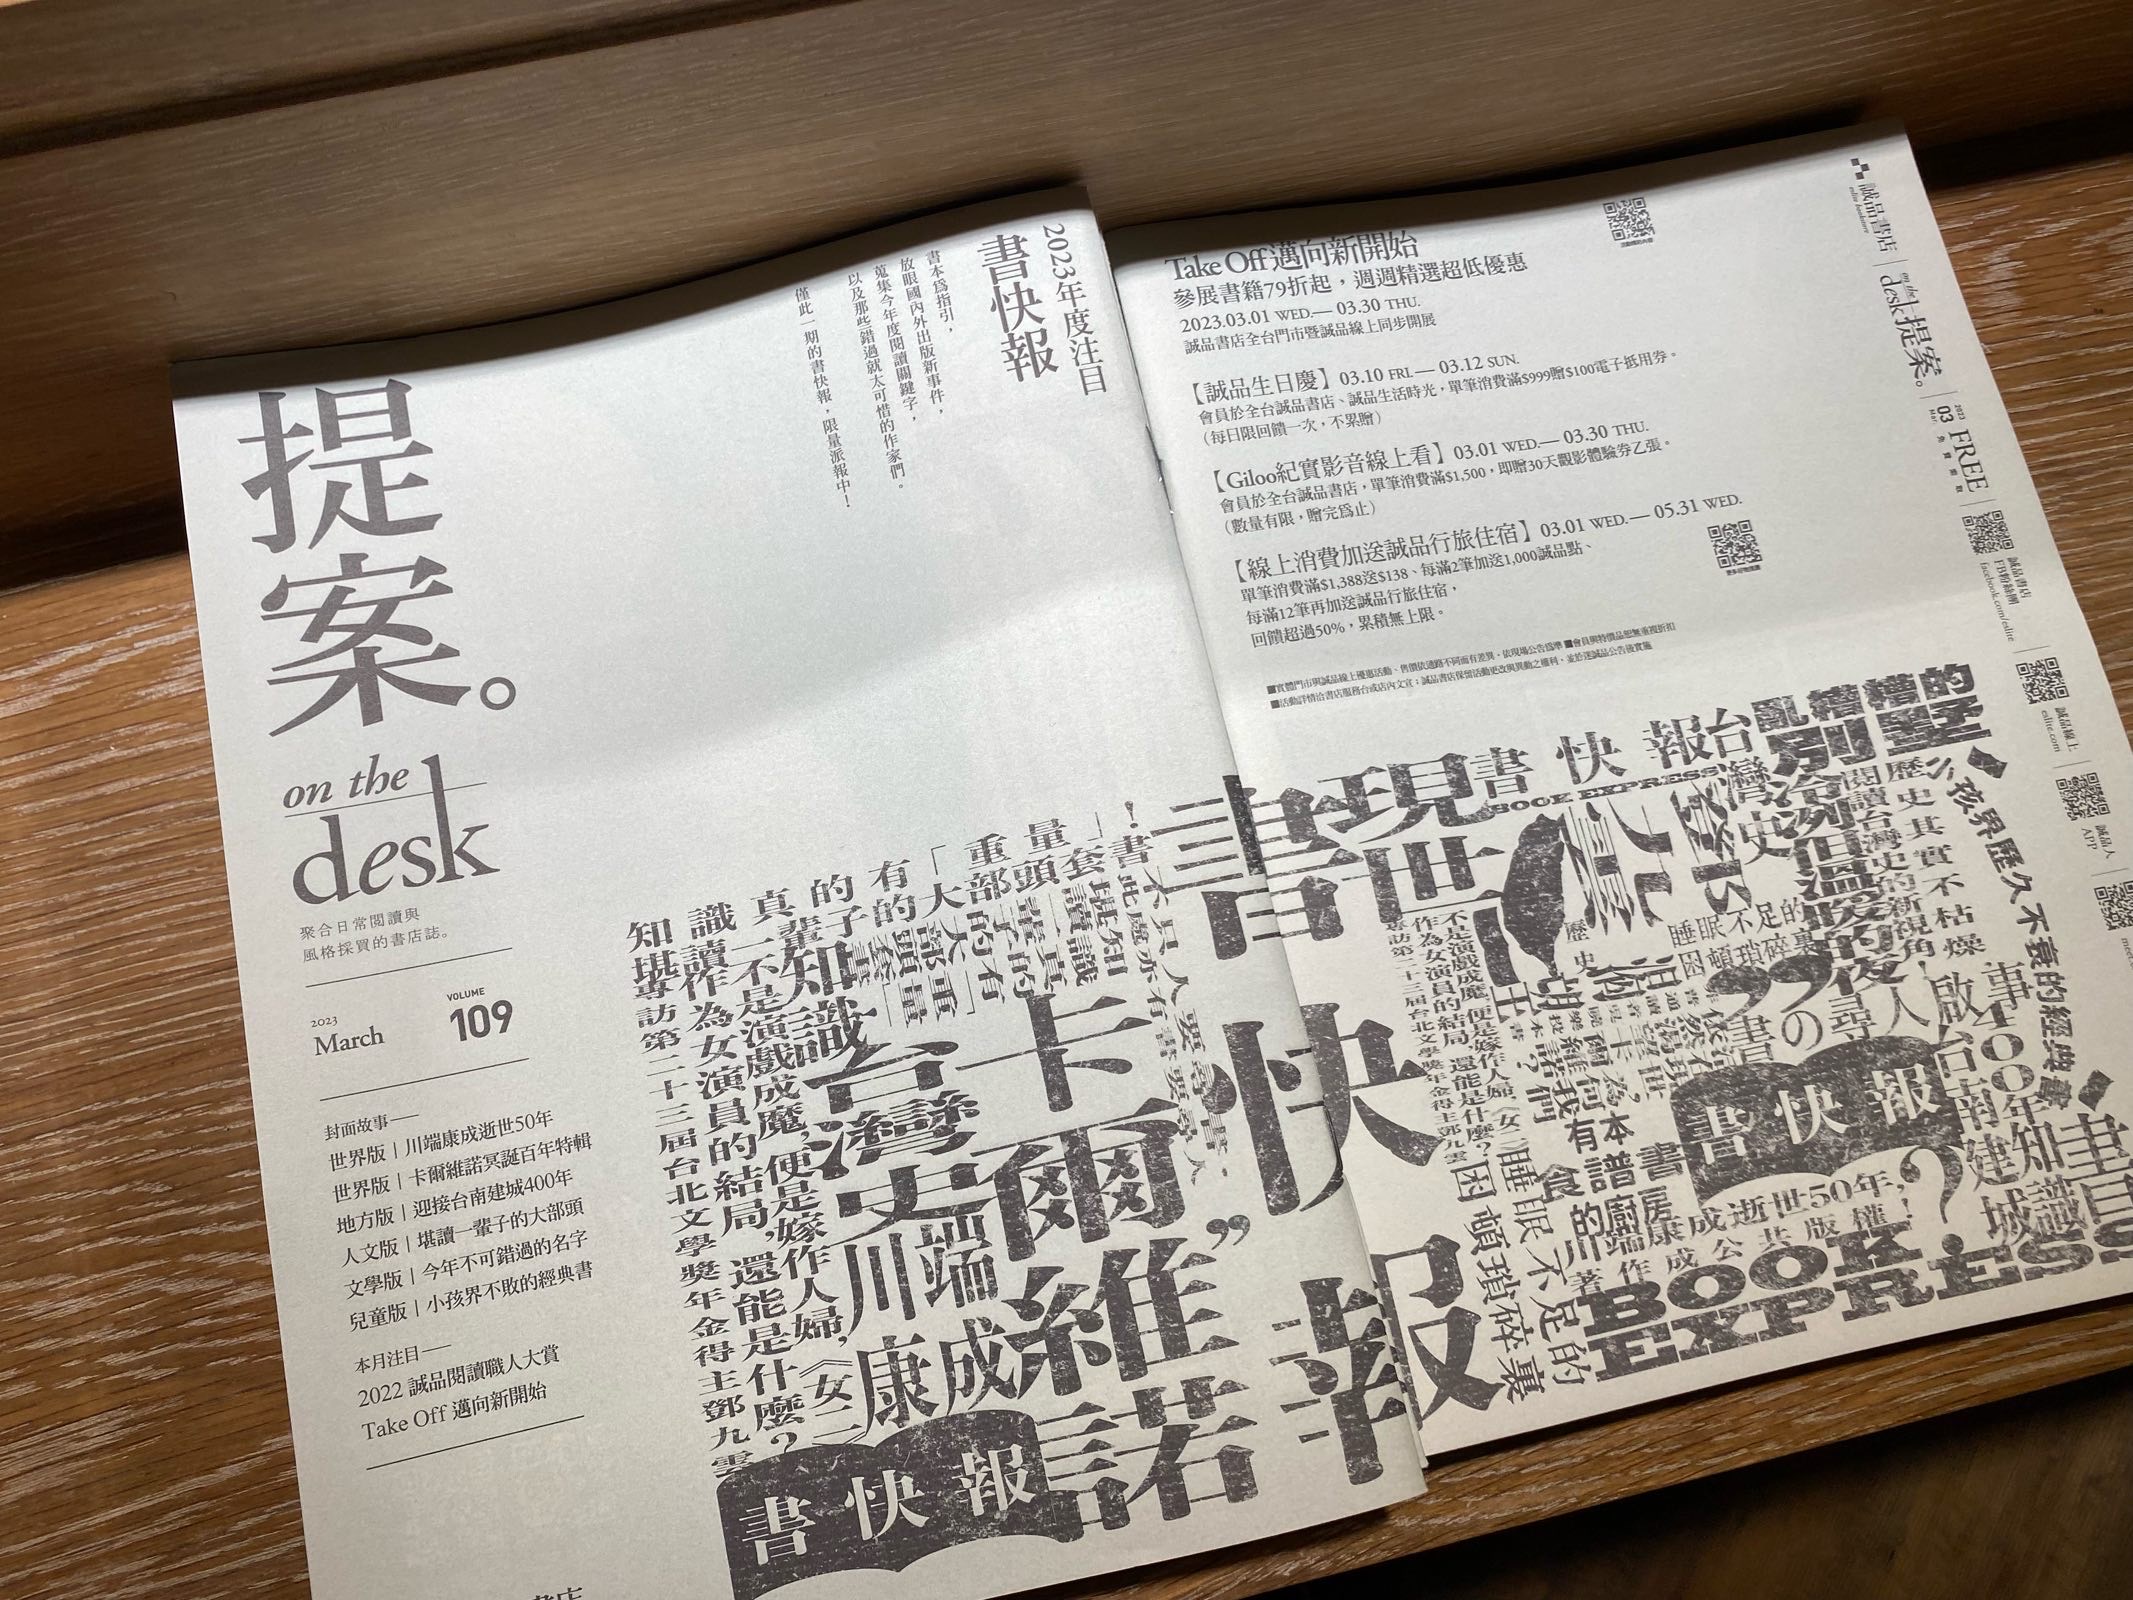 提案。
on the
desk
聚合日常閱讀與
風格採買的書店誌。
2023
March
VOLUME
109
封面故事——
世界版｜川端康成逝世50年
世界版｜卡爾維諾冥誕百年特輯
地方版｜迎接台南建城400年
人文版｜堪讀一輩子的大部頭
文學版｜今年不可錯過的名字
兒童版｜小孩界不敗的經典書
本月注目——
2022 誠品閱讀職人大賞
Take Off 邁向新開始
2023年度注目
書快報
書本為指引，
放眼國內外出版新事件，
蒐集今年度閱讀關鍵字，
以及那些錯過就太可惜的作家們。
僅此一期的書快報，限量派報中！
知識真的有「重量」！
堪讀一輩子的「大部頭套書」
專訪第二十三屆台北文學獎年金得主鄧九雲
作為女演員的結局，還能是什麼？
不是演戲成魔，便是嫁作人婦，《女二》
知識
台灣史
川端康成
卡爾維諾
書不只人要尋書
書快報
書快報
Take Off 邁向新開始
參展書籍79折起，週週精選超低優惠
2023.03.01 WED.— 03.30 THU.
誠品書店全台門市暨誠品線上同步開展
【誠品生日慶】03.10 FRI.— 03.12 SUN.
會員於全台誠品書店、誠品生活時光，單筆消費滿$999贈$100電子抵用券。
（每日限回饋一次，不累贈）
【Giloo紀實影音線上看】03.01 WED.— 03.30 THU.
會員於全台誠品書店，單筆消費滿$1,500，即贈30天觀影體驗券乙張。
（數量有限，贈完為止）
【線上消費加送誠品行旅住宿】03.01 WED.— 05.31 WED.
單筆消費滿$1,388送$138、每滿2筆加送1,000誠品點、
每滿12筆再加送誠品行旅住宿，
回饋超過50%，累積無上限。
■實體門市與誠品線上優惠活動、售價依通路不同而有差異，依現場公告為準 ■會員與特價品恕無重複折扣
■活動詳情洽書店服務台或店內文宣；誠品書店保留活動更改與異動之權利，並於迷誠品公告後實施
現世
書快報
BOOK EXPRESS
台灣史
亂糟糟的
別墅、
冷冽但溫暖的夜
閱讀台灣史的新視角
歷史其實不枯燥
小孩界歷久不衰的經典書
睡眠不足的
困頓瑣碎裏
不是演戲成魔，便是嫁作人婦，《女二》
作為女演員的結局，還能是什麼？
專訪第二十三屆台北文學獎年金得主鄧九雲
台南建城
400年
知識
書快報
川端康成逝世50年，
著作成公共版權！
睡眠不足的
困頓瑣碎裏
BOOK
EXPRESS
誠品書店
eslite bookstore
on the
desk 提案。
2023
03
Mar
FREE
免費贈閱
誠品書店
FB粉絲團
facebook.com/eslite
誠品線上
eslite.com
誠品人
APP